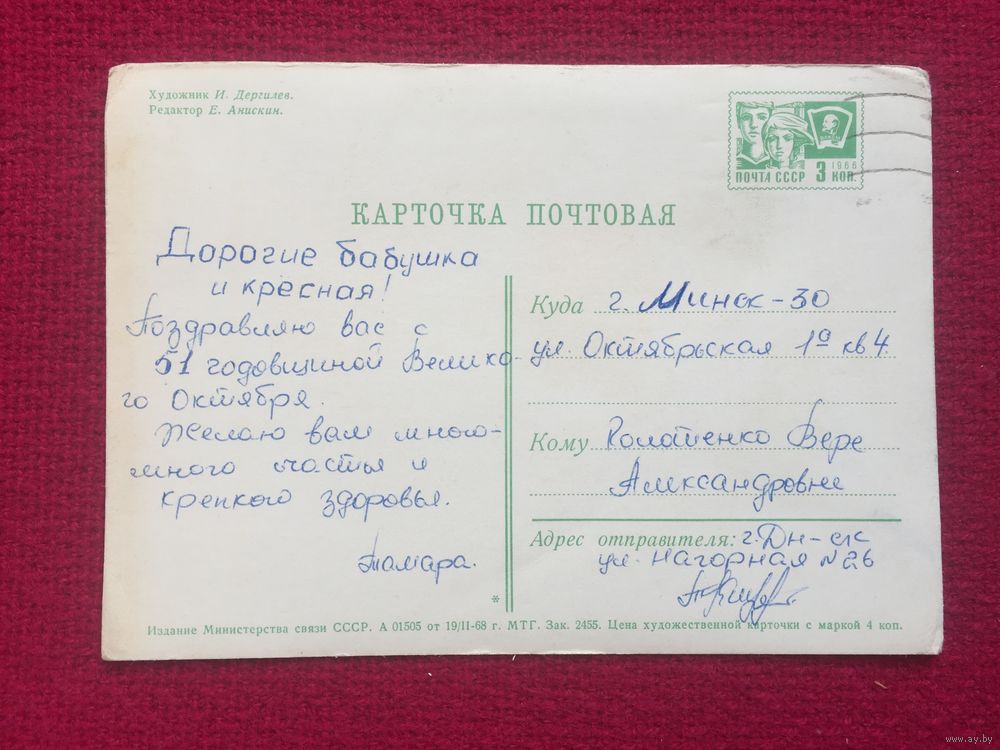 Художник И. Дергилев.
Редактор Е. Анискин.
ПОЧТА СССР 3 КОП. 1966
КАРТОЧКА ПОЧТОВАЯ
Дорогие бабушка
и кресная!
Поздравляю вас с
51 годовщиной Велико-
го Октября.
Желаю вам много-
много счастья и
крепкого здоровья.
Тамара.
Куда г. Минск-30
ул. Октябрьская 1а кв 4.
Кому Вере
Александровне
Адрес отправителя: г. Дн-ск
ул. Нагорная N 26
*
Издание Министерства связи СССР. А 01505 от 19/II-68 г. МТГ. Зак. 2455. Цена художественной карточки с маркой 4 коп.
www.ay.by